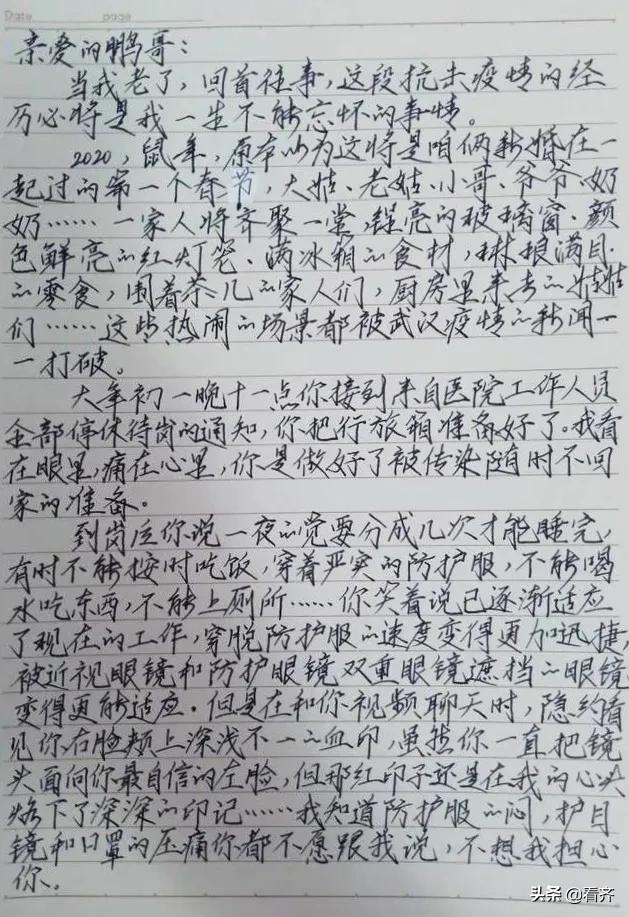 Date          page
亲爱的鹏哥：
当我老了，回首往事，这段抗击疫情的经
历必将是我一生不能忘怀的事情。
2020，鼠年，原本以为这将是咱俩新婚在一
起过的第一个春节，大姑、老姑、小哥、爷爷、奶
奶……一家人将齐聚一堂，锃亮的玻璃窗、颜
色鲜亮的红灯笼、满冰箱的食材，琳琅满目
的零食，围着茶几的家人们，厨房里来去的姑姑
们……这些热闹的场景都被武汉疫情的新闻一
一打破。
大年初一晚十一点你接到来自医院工作人员
全部停休待岗的通知，你把行旅箱准备好了。我看
在眼里，痛在心里，你是做好了被传染随时不回
家的准备。
到岗后你说一夜的觉要分成几次才能睡完，
有时不能按时吃饭，穿着严实的防护服，不能喝
水吃东西，不能上厕所……你笑着说已逐渐适应
了现在的工作，穿脱防护服的速度变得更加迅捷，
被近视眼镜和防护眼镜双重眼镜遮挡的眼镜
变得更能适应。但是在和你视频聊天时，隐约看
见你右脸颊上深浅不一的血印，虽然你一直把镜
头面向你最自信的左脸，但那红印子还是在我的心头
烙下了深深的印记……我知道防护服的闷，护目
镜和口罩的压痛你都不愿跟我说，不想我担心
你。
头条 @看齐